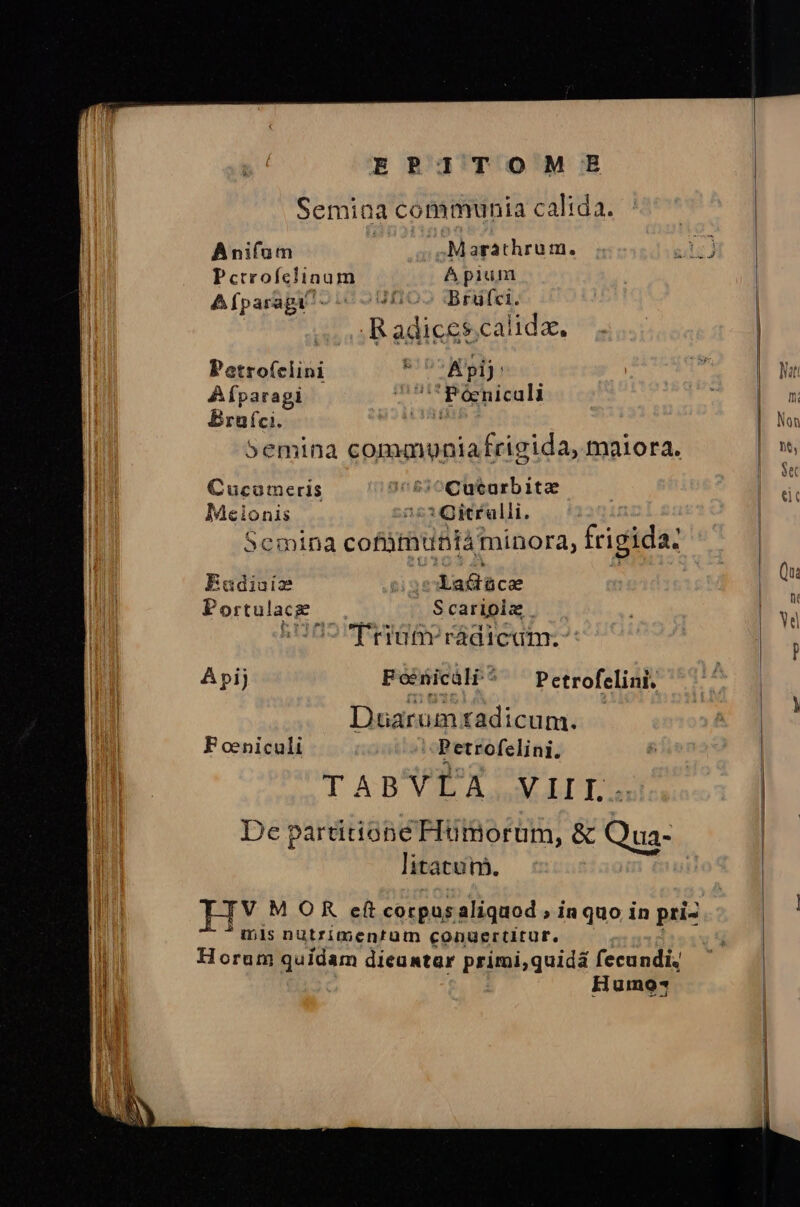 EPITOME
Semina communia calida.
Anisum Marathrum.
Petroſelinum Apium
Aſparagi Bruſci.
Radices calidæ.
Petroſelini Apij
Aſparagi Fœniculi
Bruſci.
Semina communia frigida, maiora.
Cucumeris Cucurbitæ
Melonis Citrulli.
Semina communia minora, frigida.
Endiuiæ Lactucæ
Portulacæ Scariolæ
Trium radicum.
Apij Fœniculi Petroſelini.
Duarum radicum.
Fœniculi Petroſelini.
TABVLA VIII.
De partitione Humorum, & Qua-
litatum.
HVMOR eſt corpus aliquod, in quo in pri-
mis nutrimentum conuertitur.
Horum quidam dicuntur primi, quidā ſecundi.
Humo-